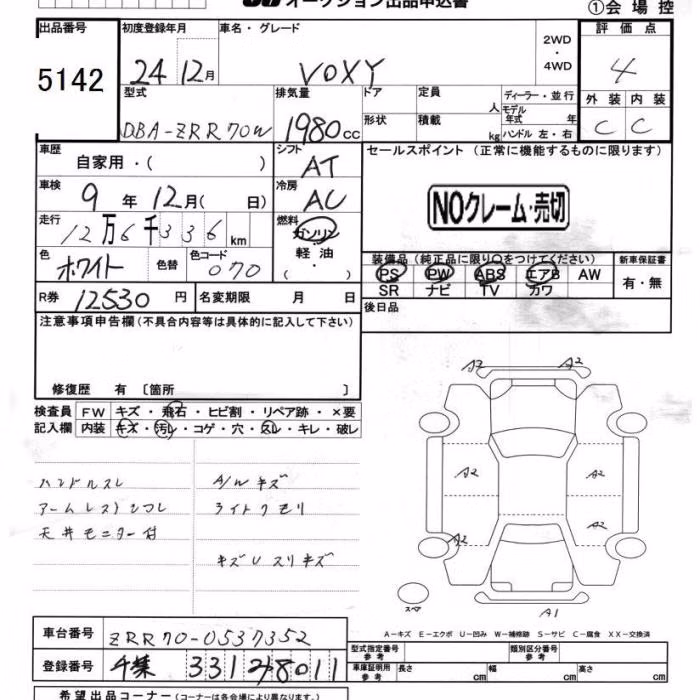 オークション出品申込書
①会場控
出品番号 初度登録年月 車名・グレード 2WD ・ 4WD 評価点
5142 24 12月 VOXY 4
型式 排気量 ドア 定員 人 ディーラー・並行 外装 内装
DBA-ZRR70W 1980cc 形状 積載 kg モデル年式 年 ハンドル 左・右 C C
車歴 自家用・( ) シフト AT セールスポイント (正常に機能するものに限ります)
車検 9年 12月( 日) 冷房 AC NOクレーム・売切
走行 12万6千336km 燃料 ガソリン 軽油 ( ・ )
色 ホワイト 色替 色コード 070
装備品 (純正品に限り○をつけてください) 新車保証書
PS PW ABS エアB AW 有・無
SR ナビ TV カワ
R券 12530円 名変期限 月 日 後日品
注意事項申告欄(不具合内容等は具体的に記入して下さい)
修復歴 有〔箇所 〕
検査員 FW キズ・飛石・ヒビ割・リペア跡・×要
記入欄 内装 キズ・汚レ・コゲ・穴・スレ・キレ・破レ
ハンドルスレ A/W キズ
アームレストシワ ライトクモリ
天井モニター付
キズUスリキズ
A2 A2
A2 A2
A2 A2
スペア A1
A-キズ E-エクボ U-凹み W-補修跡 S-サビ C-腐食 XX-交換済
車台番号 ZRR70-0537352
型式指定番号 参考 類別区分番号 参考
登録番号 千葉 331 8011
車庫証明用 参考 長さ cm 幅 cm 高さ cm
希望出品コーナー(コーナーは各会場により異なります。)